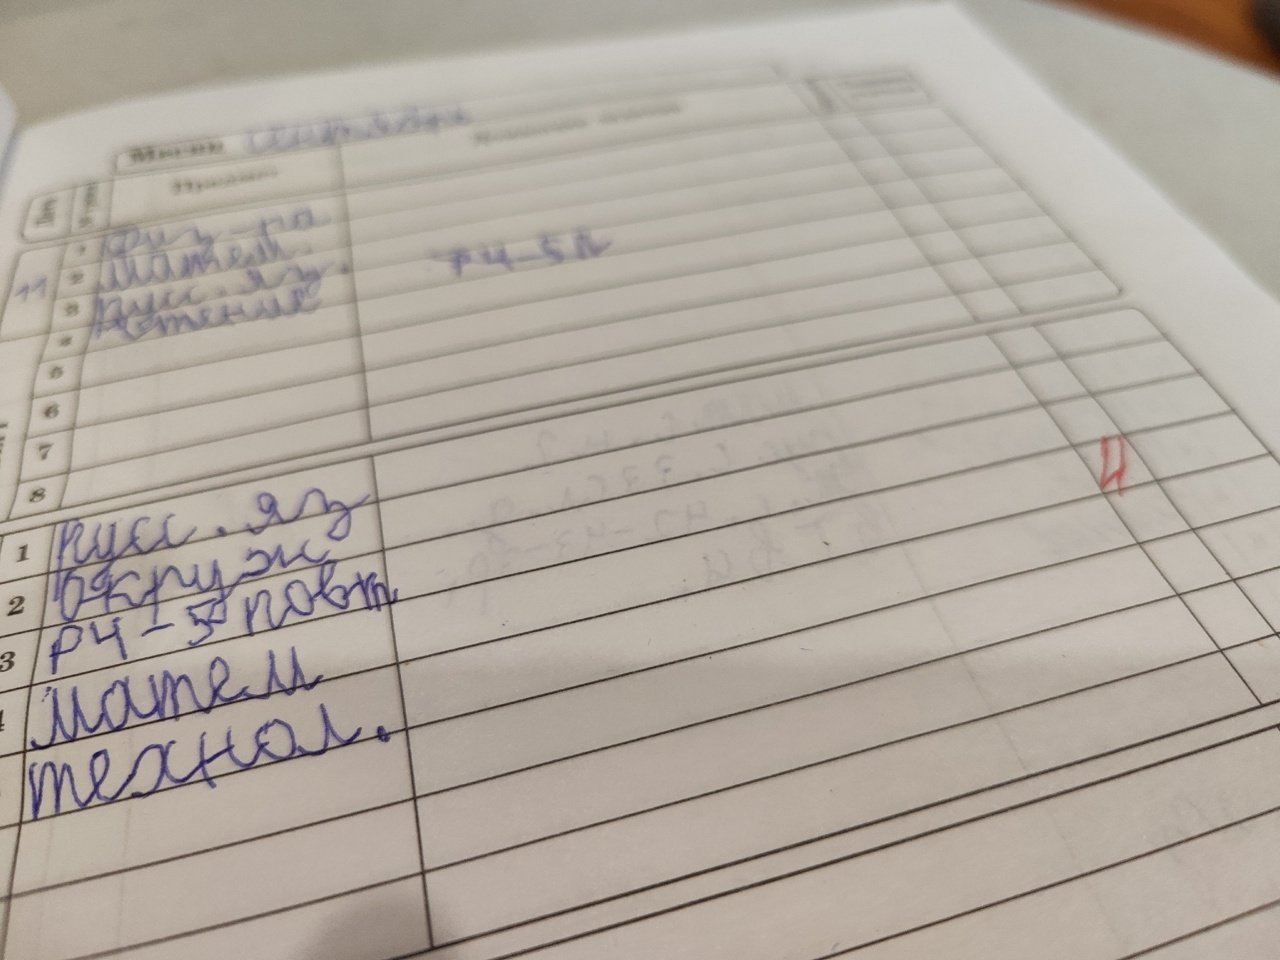 Месяц сентябрь
Предмет
1 физ-ра
11 2 матем.
3 русс. яз. РЧ-5п
4 чтение
5
6
7
8
1 русс. яз
2 окруж
3 РЧ-5 повт
4 матем
технол.
4